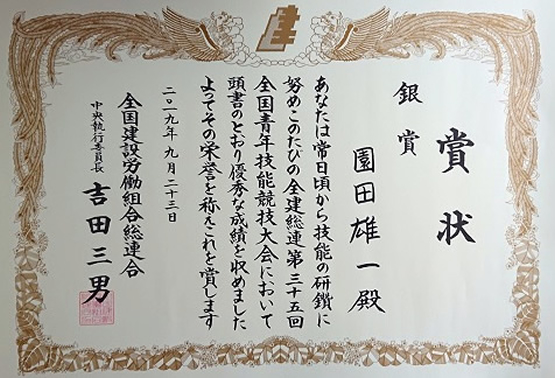 建
賞状
銀賞
園田雄一殿
あなたは常日頃から技能の研鑽に
努めこのたびの全建総連第三十五回
全国青年技能競技大会において
頭書のとおり優秀な成績を収めました
よってその栄誉を称えこれを賞します
二〇一九年九月二十三日
全国建設労働組合総連合
中央執行委員長 吉田三男